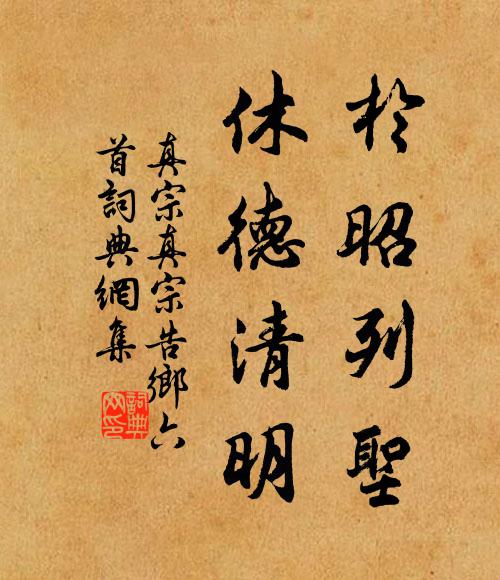 於昭列聖
休德清明
真宗真宗告鄉六
首詞典網集
詞典
網印